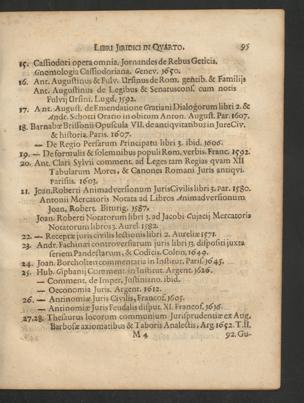 LIBRI JURIDICI IN QVARTO. 95
15. Cassiodori opera omnia. Jornandes de Rebus Geticis.
Gnomologia Cassiodoriana. Genev. 1650.
16. Ant. Augustinus & Fulv. Ursinus de Rom. gentib. & Familijs
Ant. Augustinus de Legibus & Senatuscons. cum notis
Fulvij Ursini. Lugd. 1592.
17. Ant. August. de Emendatione Gratiani Dialogorum libri 2. &
Andr. Schotti Oratio in obitum Anton. August. Par. 1607.
18. Barnabæ Brissonii Opuscula VII. de antiqvitatibus in Jure Civ.
& historia. Paris. 1607.
— De Regio Persarum Principatu libri 3. ibid. 1606.
19. — De formulis & solemnibus populi Rom. verbis. Franc. 1592.
20. Ant. Clari Sylvii comment. ad Leges tam Regias qvam XII
Tabularum Mores, & Canones Romani Juris antiqvi.
Parisiis. 1603.
21. Joan. Roberti Animadversionum Juris Civilis libri 3. Par. 1580.
Antonii Mercatoris Notata ad Libros Animadversionum
Joan. Robert. Biturig. 1587.
Joan. Roberti Notatorum libri 3. ad Jacobi Cujacij Mercatoris
Notatorum libros 3. Aurel. 1582.
22. — Receptæ juris civilis lectionis libri 2. Aureliæ 1571.
23. Andr. Fachinæi controversiarum juris libri 13. dispositi juxta
seriem Pandectarum, & Codicis. Colon. 1649.
24. Joan. Borcholten commentaria in Institut. Paris. 1645.
25. Hub. Giphanij Comment. in Institut. Argent. 1626.
— Comment. de Imper. Justiniano. ibid.
— Oeconomia Juris. Argent. 1612.
26. — Antinomiæ Juris Civilis, Francof. 1605.
— Antinomiæ Juris Feudalis disput. XI. Francof. 1616.
27. 28. Thesaurus locorum communium Jurisprudentiæ ex Aug.
Barbosæ axiomatibus & Taboris Analestis, Arg. 1652. T. II.
M 4 92. Gu-